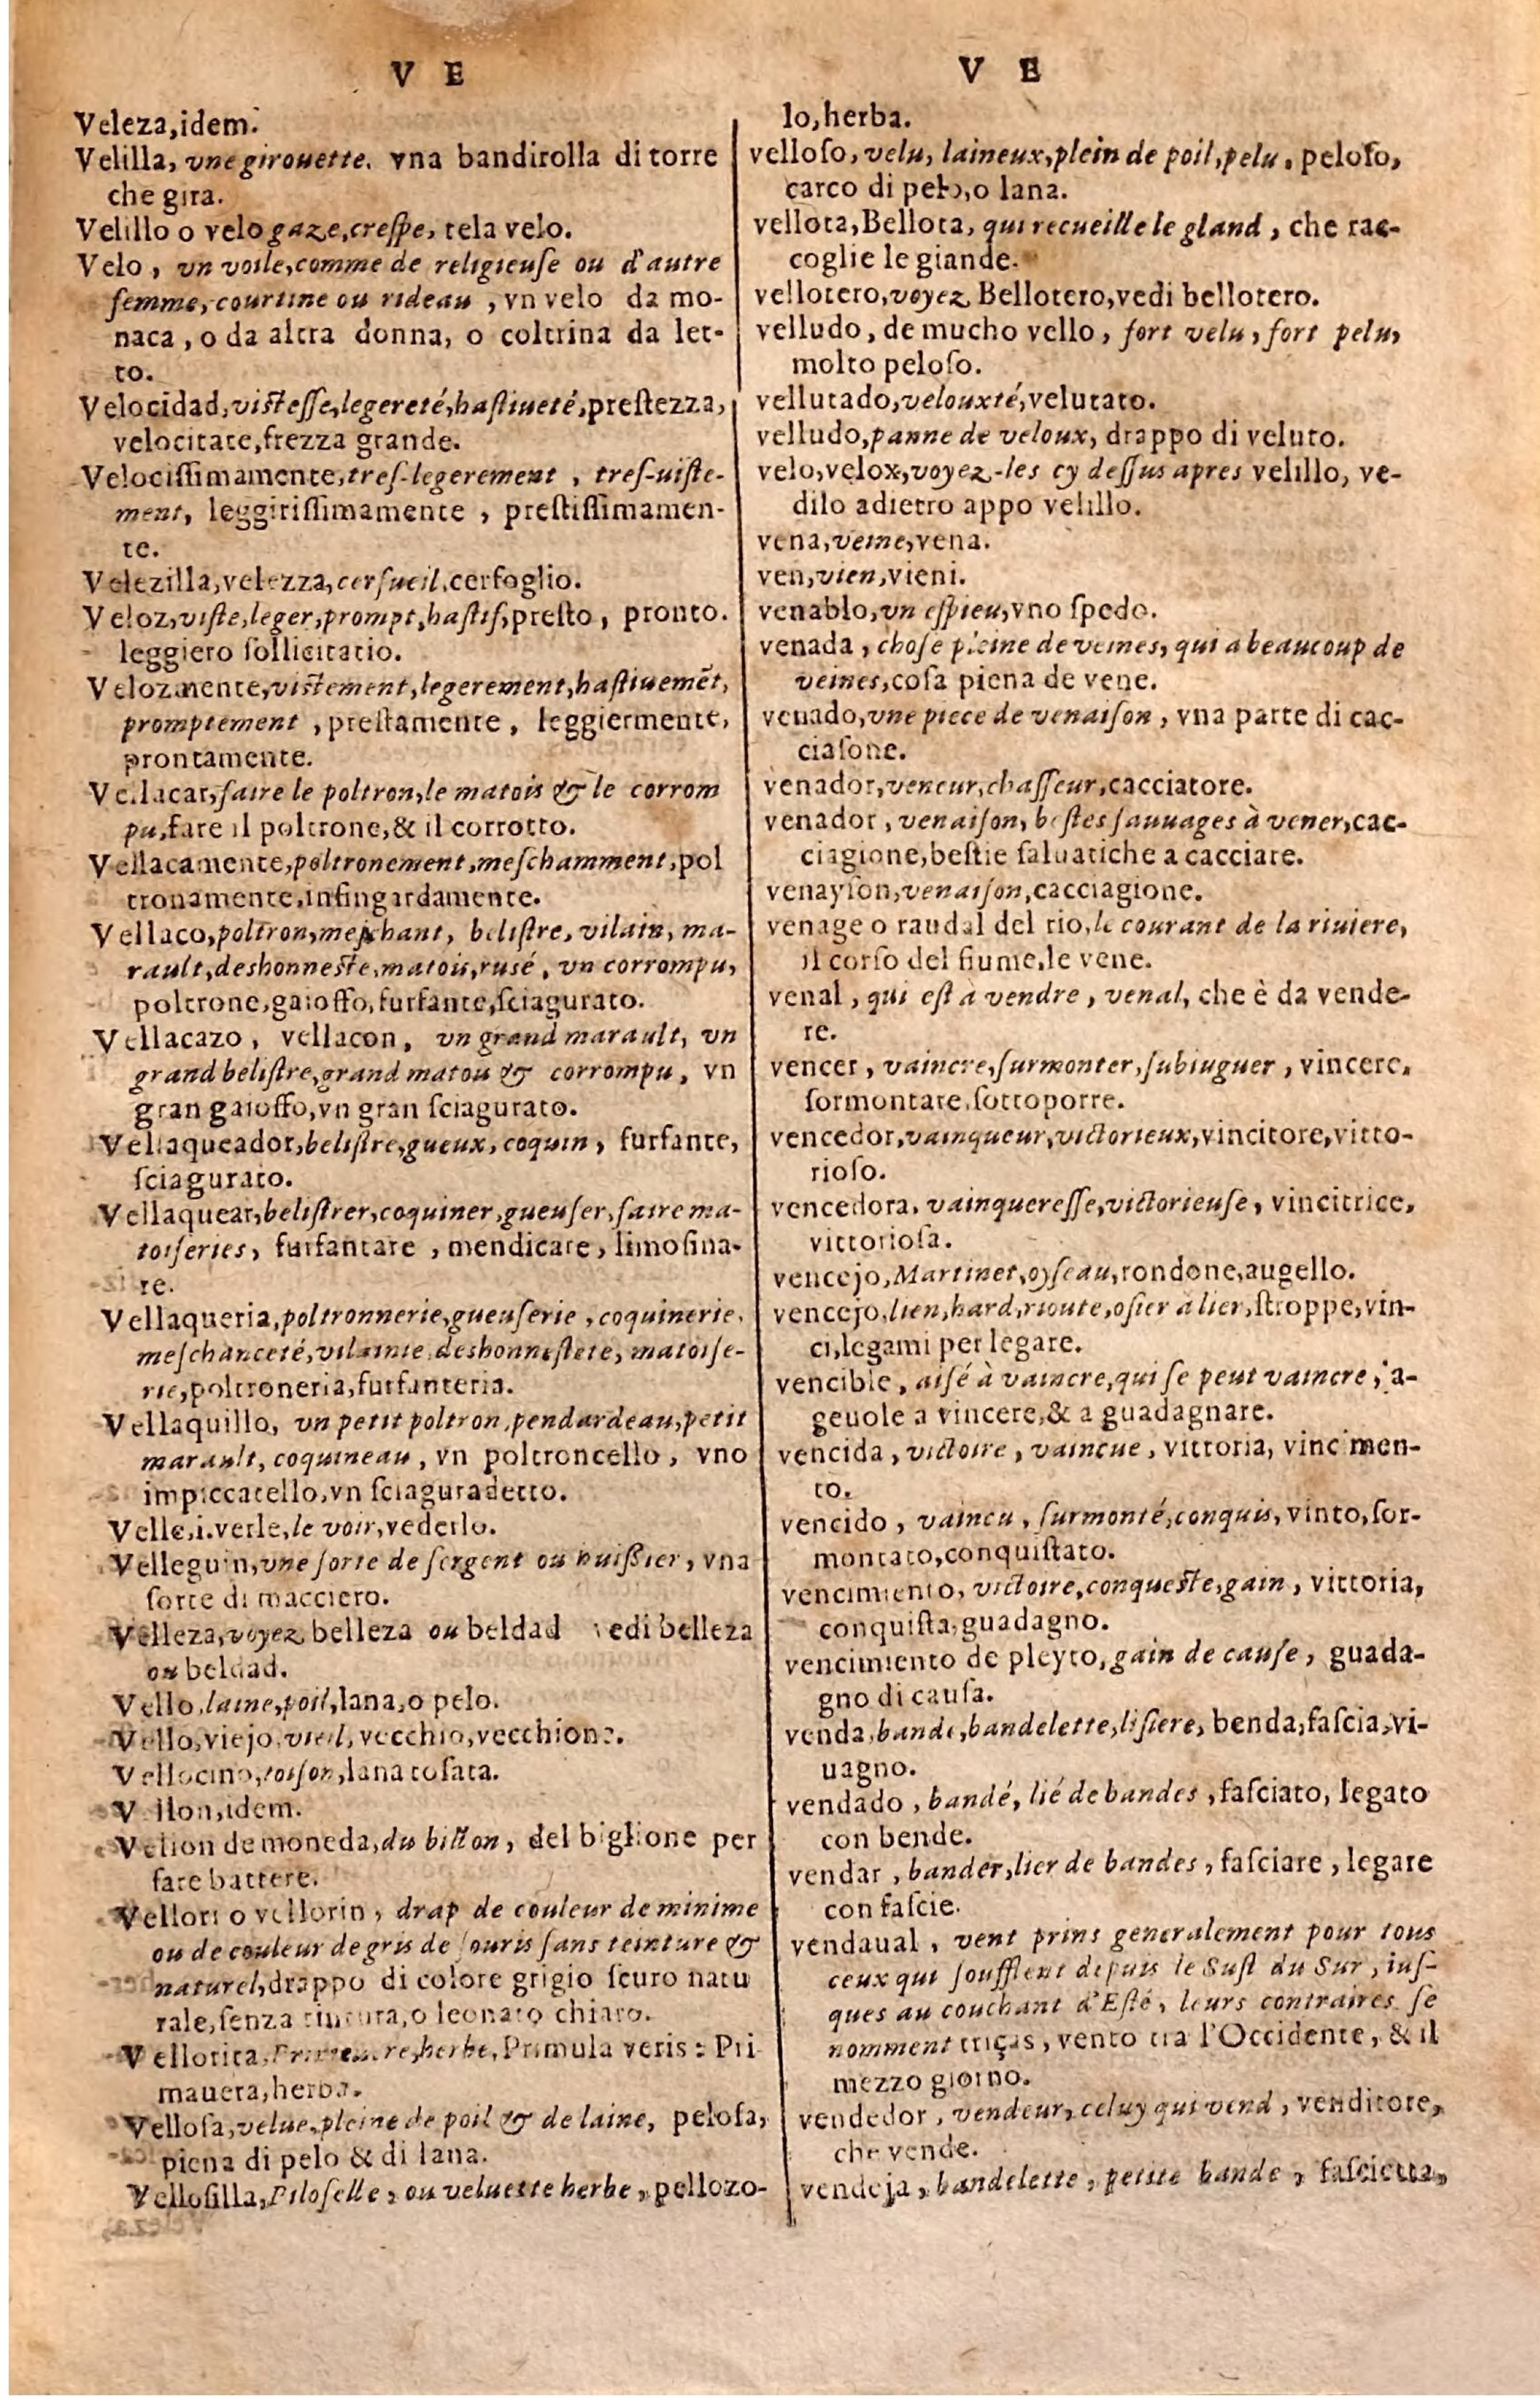 V E
Veleza,idem.
Velilla, vne girouette. vna bandirolla di torre
che gira.
Velillo o velo gaze,crespe, tela velo.
Velo, vn voile,comme de religieuse ou d'autre
femme, courtine ou rideau, vn velo da mo-
naca, o da altra donna, o coltrina da let-
to.
Velocidad, vistesse,legereté,hastiueté,prestezza,
velocitate,frezza grande.
Velocissimamente,tres-legerement, tres-uiste-
ment, leggirissimamente, prestissimamen-
te.
Velezilla,velezza,cerfueil,cerfoglio.
Veloz,viste,leger,prompt,hastif,presto, pronto.
leggiero sollicitatio.
Velozmente,vistement,legerement,hastiuemẽt,
promptement, prestamente, leggiermente,
prontamente.
Vellacar,faire le poltron,le matois & le corrom
pu,fare il poltrone,& il corrotto.
Vellacamente,poltronement,meschamment,pol
tronamente,infingardamente.
Vellaco,poltron,meschant, belistre, vilain, ma-
rault,deshonneste,matois,rusé, vn corrompu,
poltrone,gaioffo,furfante,sciagurato.
Vellacazo, vellacon, vn grand marault, vn
grand belistre,grand matou & corrompu, vn
gran gaioffo,vn gran sciagurato.
Vellaqueador,belistre,gueux,coquin, furfante,
sciagurato.
Vellaquear,belistrer,coquiner,gueuser,faire ma-
toiseries, furfantare, mendicare, limosina-
re.
Vellaqueria,poltronnerie,gueuserie, coquinerie,
meschanceté,vilainie,deshonnesteté, matoise-
rie,poltroneria,furfanteria.
Vellaquillo, vn petit poltron,pendardeau,petit
marault, coquineau, vn poltroncello, vno
impiccatello,vn sciaguradetto.
Velle,i.verle,le voir,vederlo.
Velleguin,vne sorte de sergent ou huissier, vna
sorte di macciero.
Velleza,voyez belleza ou beldad vedi belleza
ou beldad.
Vello,laine,poil,lana,o pelo.
Vello,viejo,vieil,vecchio,vecchione.
Vellocino,toison,lana tosata.
Vellon,idem.
Vellon de moneda,du billon, del biglione per
fare battere.
Vellori o vellorin, drap de couleur de minime
ou de couleur de gris de souris sans teinture &
naturel,drappo di colore grigio scuro natu
rale,senza tintura,o leonato chiaro.
Vellorita,Primeuere,herbe,Primula veris: Pri
mauera,herba.
Vellosa,velue,pleine de poil & de laine, pelosa,
piena di pelo & di lana.
Vellosilla,Piloselle, ou veluette herbe, pellozo-
V E
lo,herba.
velloso, velu, laineux,plein de poil,pelu. peloso,
carco di pelo,o lana.
vellota,Bellota, qui recueille le gland, che rac-
coglie le giande.
vellotero,voyez Bellotero,vedi bellotero.
velludo, de mucho vello, fort velu, fort pelu,
molto peloso.
vellutado,velouxté,velutato.
velludo,panne de veloux, drappo di veluto.
velo,velox,voyez-les cy dessus apres velillo, ve-
dilo adietro appo velillo.
vena,veine,vena.
ven,vien,vieni.
venablo,vn espieu,vno spedo.
venada, chose pleine de veines, qui a beaucoup de
veines,cosa piena de vene.
venado,vne piece de venaison, vna parte di cac-
ciasone.
venador,veneur,chasseur,cacciatore.
venador, venaison, bestes sauuages à vener,cac-
ciagione,bestie saluatiche a cacciare.
venayson,venaison,cacciagione.
venage o raudal del rio,le courant de la riuiere,
il corso del fiume,le vene.
venal, qui est à vendre, venal, che è da vende-
re.
vencer, vaincre,surmonter,subiuguer, vincere,
sormontare,sottoporre.
vencedor,vainqueur,victorieux,vincitore,vitto-
rioso.
vencedora. vainqueresse,victorieuse, vincitrice,
vittoriosa.
vencejo,Martinet,oyseau,rondone,augello.
vencejo,lien,hard,rioute,osier à lier,stroppe,vin-
ci,legami per legare.
vencible, aisé à vaincre,qui se peut vaincre, a-
geuole a vincere,& a guadagnare.
vencida, victoire, vaincue, vittoria, vincimen-
to.
vencido, vaincu, surmonté,conquis, vinto,sor-
montato,conquistato.
vencimiento, victoire,conqueste,gain, vittoria,
conquista,guadagno.
vencimiento de pleyto,gain de cause, guada-
gno di causa.
venda,bande,bandelette,lisiere, benda,fascia,vi-
uagno.
vendado, bandé, lié de bandes, fasciato, legato
con bende.
vendar, bander,lier de bandes, fasciare, legare
con fascie.
vendaual, vent prins generalement pour tous
ceux qui soufflent depuis le Sust du Sur, ius-
ques au couchant d'Esté, leurs contraires se
nomment triças, vento tra l'Occidente, & il
mezzo giorno.
vendedor, vendeur, celuy qui vend, venditore,
che vende.
vendeja, bandelette, petite bande, fascietta,